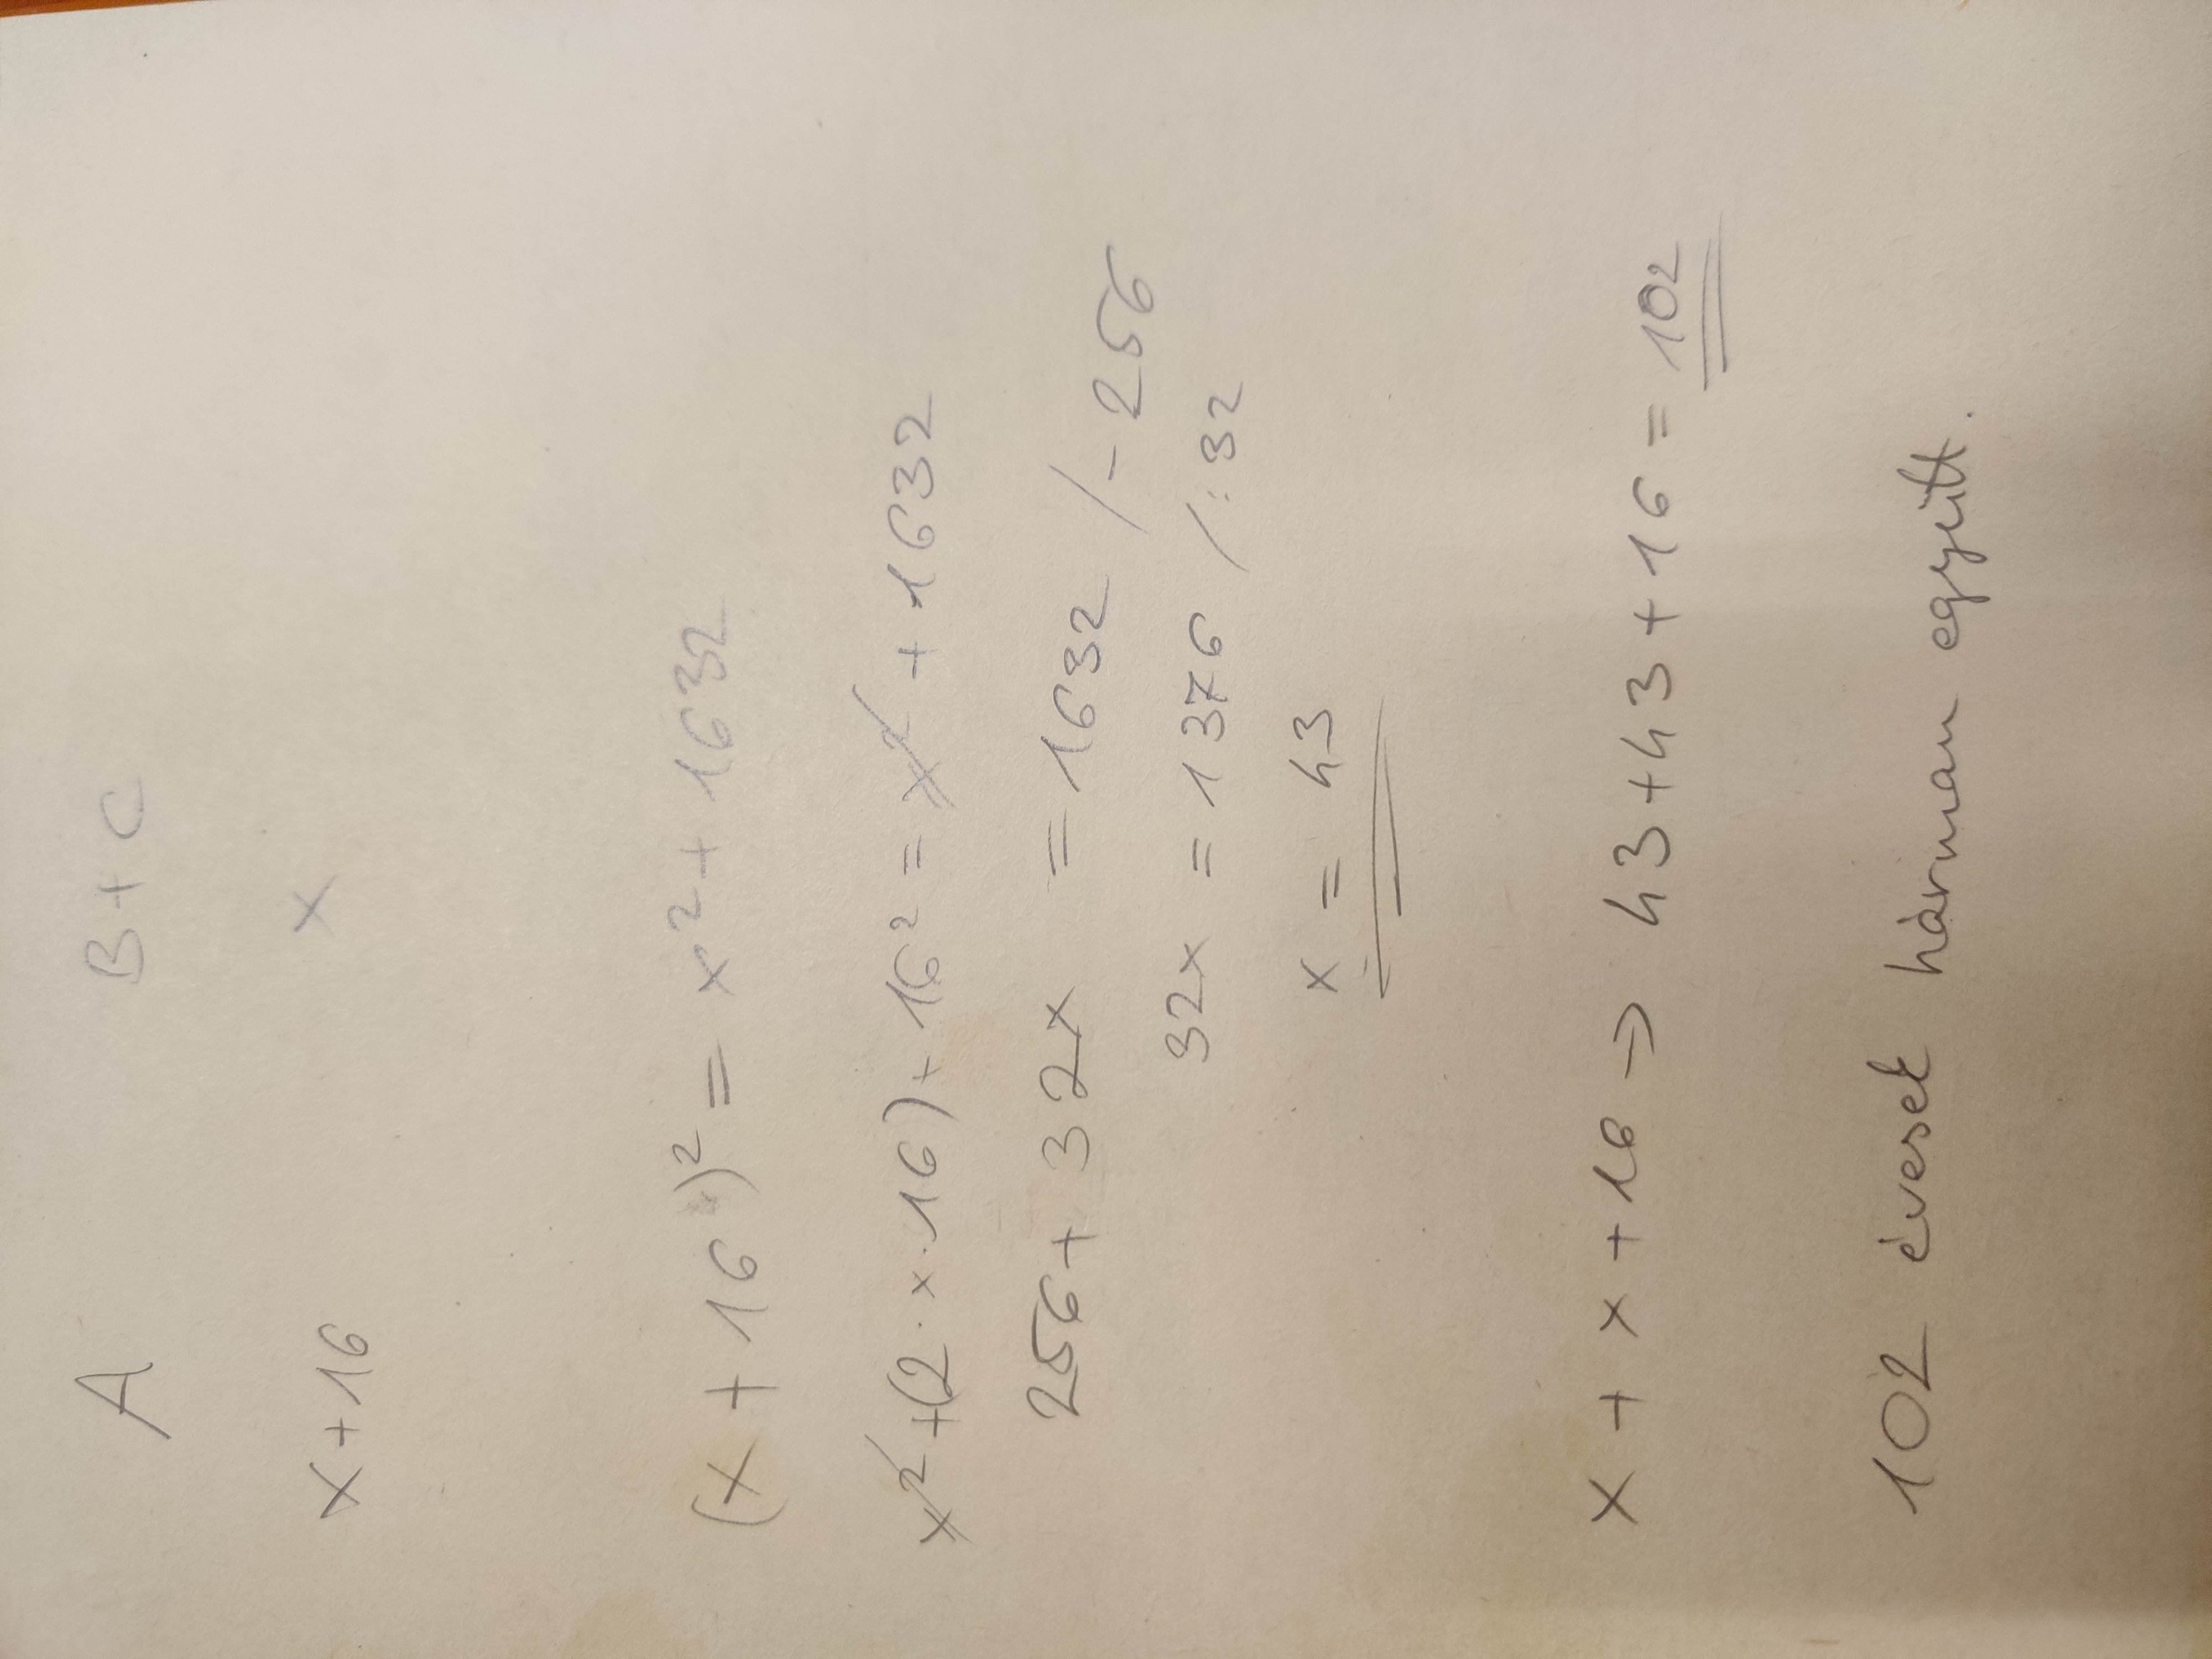 A B+C
x+16 x
(x+16)² = x²+1632
x²+(2·x·16)+16² = x²+1632
256+32x = 1632 /-256
32x = 1376 /:32
x = 43
x+x+16 → 43+43+16 = 102
102 évesek hárman együtt.